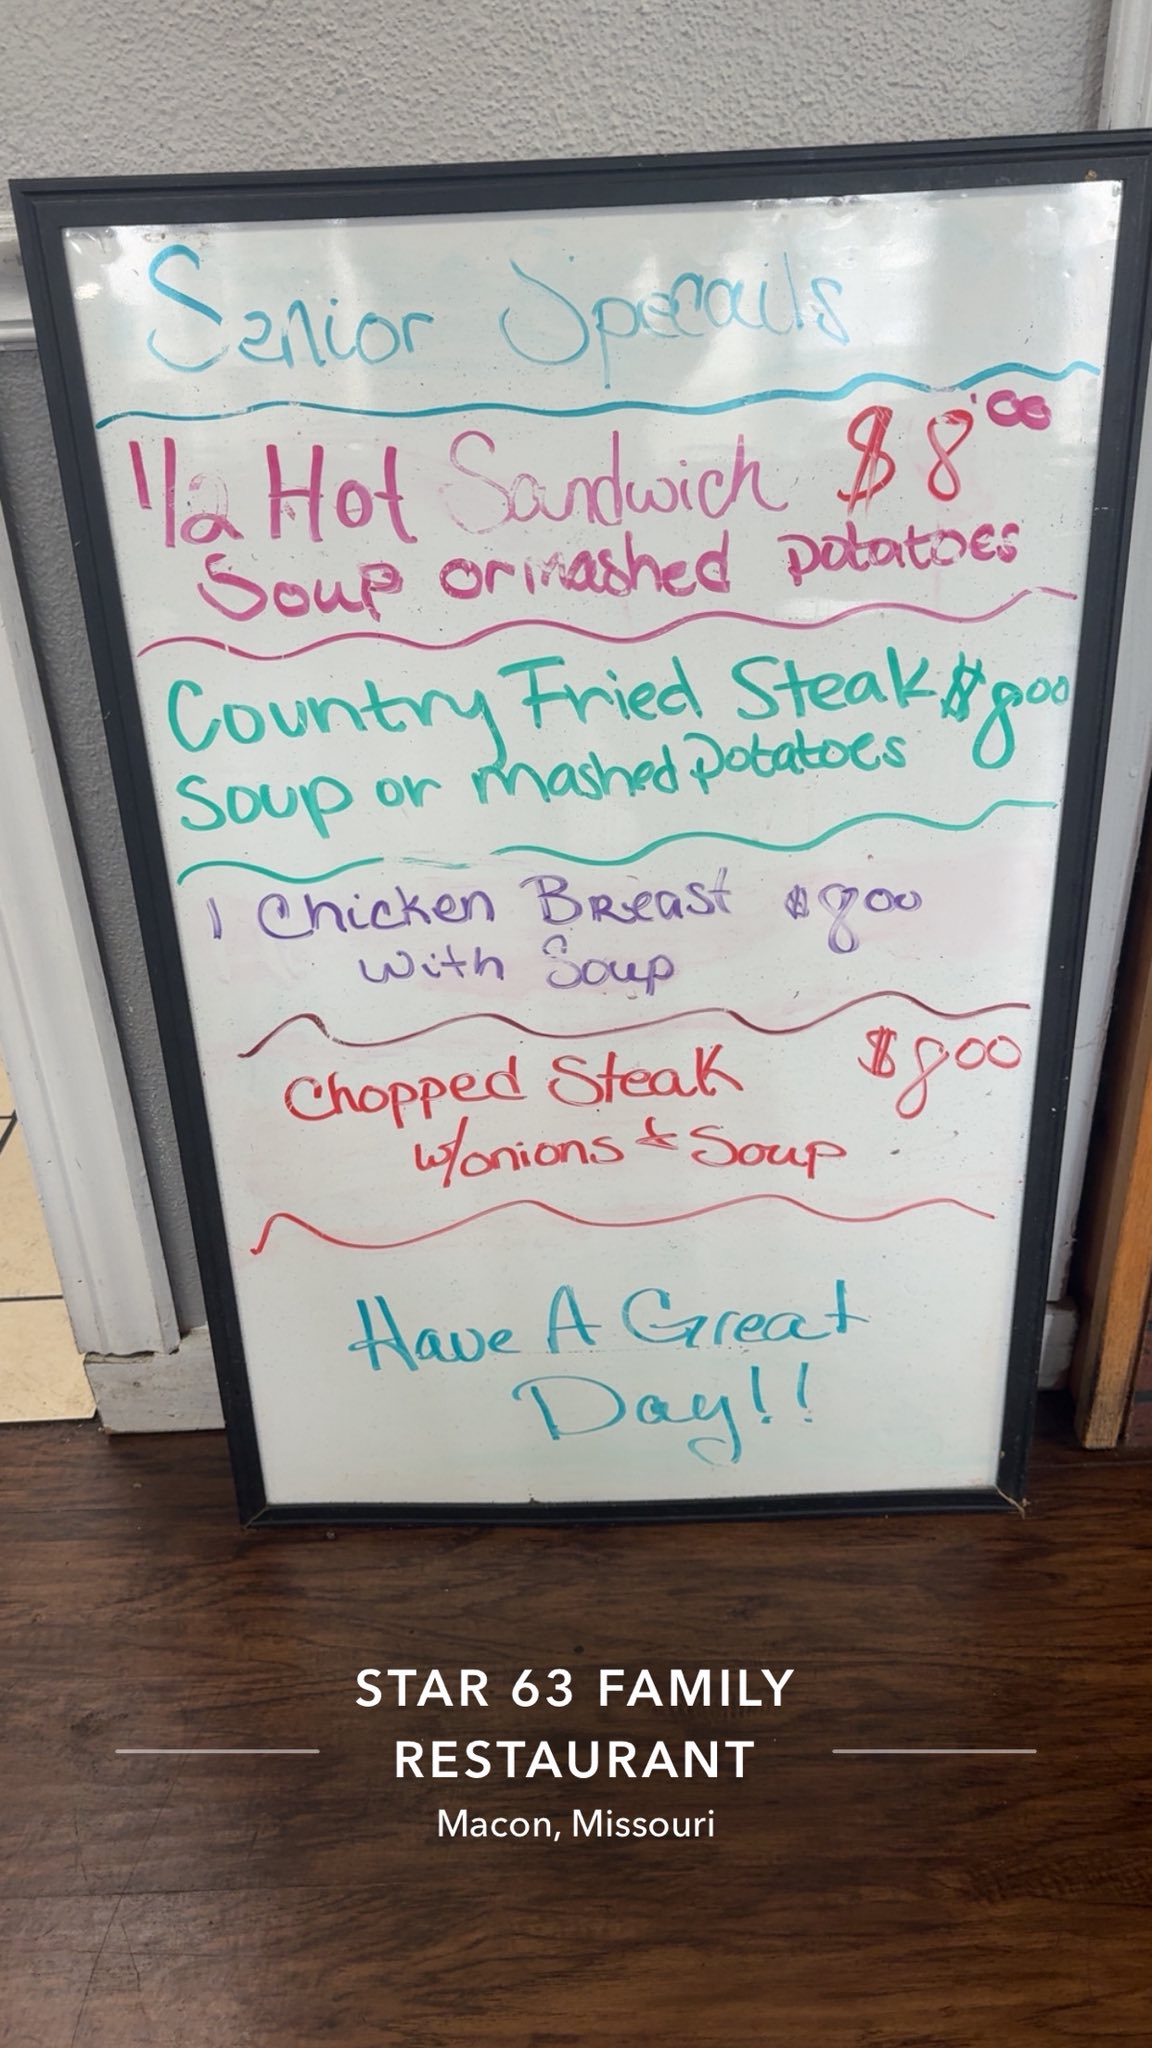 Senior Specails
1/2 Hot Sandwich $8.00
Soup or mashed potatoes
Country Fried Steak $8.00
Soup or mashed potatoes
1 Chicken Breast $8.00
with Soup
Chopped Steak $8.00
w/onions & Soup
Have A Great
Day!!
STAR 63 FAMILY
RESTAURANT
Macon, Missouri